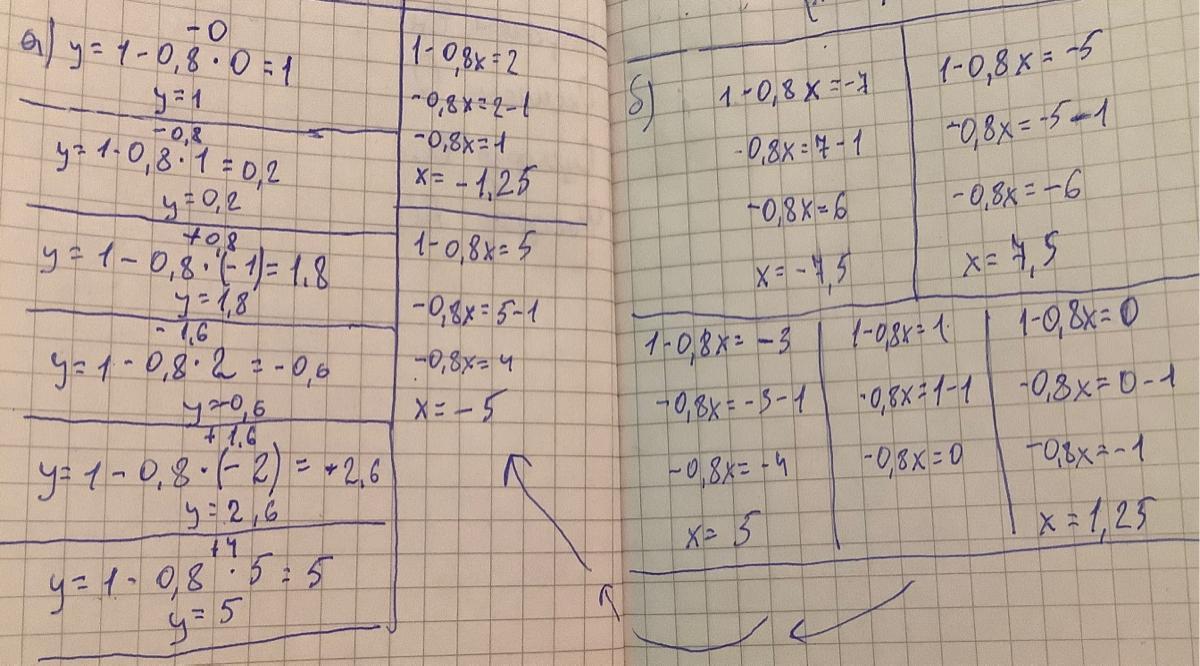 а) y = 1 - 0,8 · 0 = 1
-0
y = 1
-0,8
y = 1 - 0,8 · 1 = 0,2
y = 0,2
+0,8
y = 1 - 0,8 · (-1) = 1,8
y = 1,8
-1,6
y = 1 - 0,8 · 2 = -0,6
y = -0,6
+1,6
y = 1 - 0,8 · (-2) = +2,6
y = 2,6
+4
y = 1 - 0,8 · 5 = 5
y = 5
1-0,8x=2
-0,8x=2-1
-0,8x=1
x= -1,25
1-0,8x= 5
-0,8x=5-1
-0,8x=4
x= -5
б)
1-0,8x=-7
-0,8x=7-1
-0,8x=6
x= -7,5
1-0,8x= -5
-0,8x= -5-1
-0,8x= -6
x= 7,5
1-0,8x= -3
-0,8x= -3-1
-0,8x= -4
x= 5
1-0,8x=1
-0,8x=1-1
-0,8x=0
1-0,8x=0
-0,8x=0-1
-0,8x=-1
x=1,25